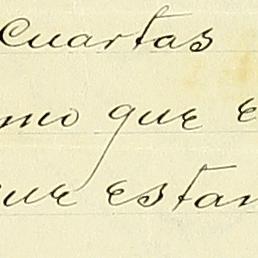 Cuartas
mo que e
que estan